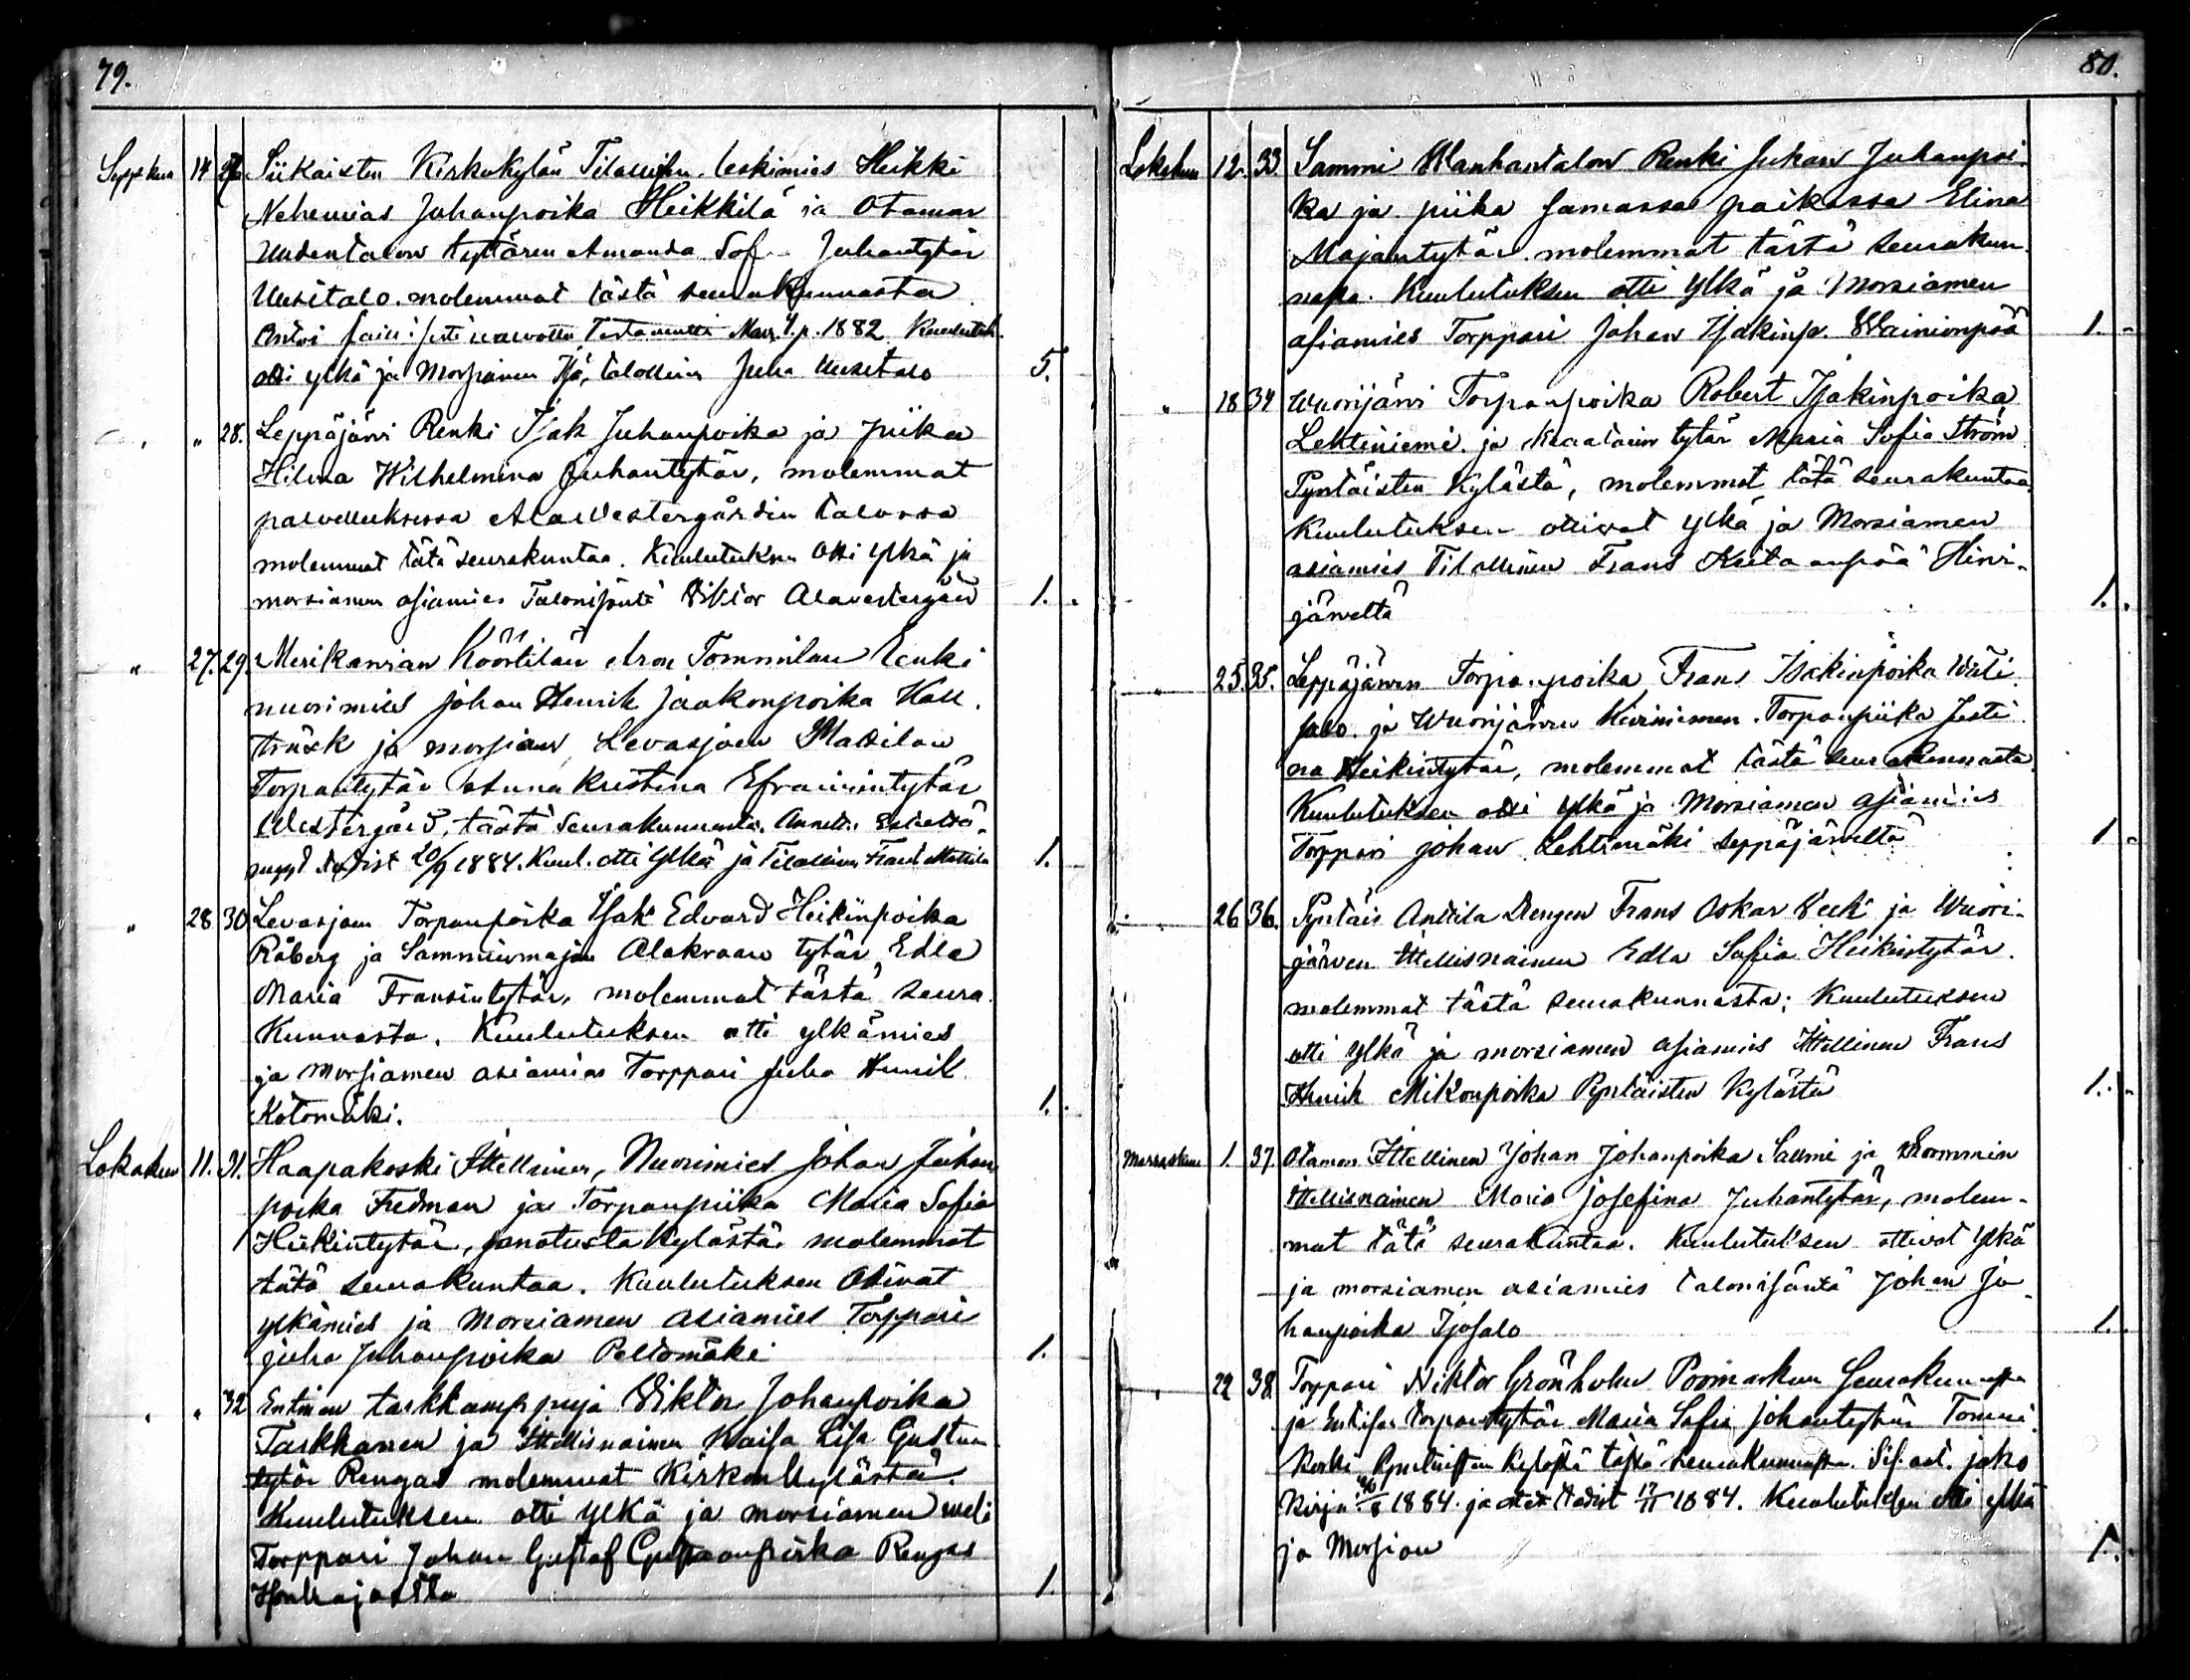 79.
Syyskuu 14 27 Siikaisten Kirkokylän Tilallisen leskimies Heikki
Nehemias Juhanpoika Heikkilä ja Otamon
Uudentalon tyttären Amanda Sof. Juhantytär
Uusitalo. molemmat tästä seurakunnasta.
Antoi Testamentti Marr. 4. p. 1882 Kuulutuk.
otti ylkä ja Morsiamen Isä, talollinen Juha Uusitalo 5.
" 28. Leppäjärvi Renki Isak Juhanpoika ja piika
Hilma Wilhelmina Juhantytär, molemmat
palvelluksessa Alawestergårdin talossa
molemmat tätä seurakuntaa. Kuulutuksen Otti ylkä ja
morsiamen asiamies Talonisäntä Viktor Alavestergård 1.
" 27. 29. Merikarvian Köörtilän Aron Tommilan Renki
nuorimies Johan Henrik Jaakonpoika Kall.
träsk ja morsian Levasjoen Mattilan
Torpantytär Anna Kristina Efraimintytär
Westergård, tästä Seurakunnasta.
20/9 1884. Kuul. otti Ylkä ja Tilallinen Frans Mattila 1.
" 28 30 Levasjoen Torpanpoika Isak Edvard Heikinpoika
Råberg ja Sammiinmajan Alakraan tytär Edla
Maria Fransintytär, molemmat tästä seura
Kunnasta. Kuulutuksen otti ylkämies
ja Morsiamen asiamies Torppari Juha Henrik
Kotomäki. 1.
Lokakuu 11. 31. Haapakoski Ittellinen, Nuorimies Johan Juhan
poika Fredman ja Torpanpiika Maria Sofia
Heikintytär, samatusta Kylästä molemmat
tätä seurakuntaa. Kuulutuksen Otivat
ylkämies ja Morsiamen asiamies Torppari
Juha Juhanpoika Peltomäki 1.
" " 32 Entinen tarkkampuja Viktor Johanpoika
Tarkkanen ja Ittellisnainen Kaisa Lisa Gustaan
tytär Rengas molemmat Kirkonkylästä
Kuulutuksen otti ylkä ja morsiamen veli
Torppari Johan Gustaf Gustaanpoika Rengas
Honkajoelta 1.
80.
Lokakuu 12. 33 Sammi Wanhantalon Renki Juhan Juhanpoi
ka ja piika samassa paikassa Elina
Majantytär molemmat tästä seurakun
nasa. Kuulutuksen otti Ylkä ja Morsiamen
asiamies Torppari Johan Isakinp. Wainionpää 1.
" 18 34 Wuorijärvi Torpanpoika Robert Isakinpoika
Lehtiniemi ja tytär Maria Sofia Ström
Pyntäisten Kylästä, molemmat tätä seurakuntaa
Kuulutuksen ottivat Ylkä ja Morsiamen
asiamies Tilallinen Frans Keitaanpää Hirvi-
järveltä 1.
" 25. 35. Leppäjärven Torpanpoika Frans Isakinpoika Wäli
salo. ja Wuorijärven Kiviniemen Torpanpiika Justi
na Heikintytär, molemmat tästä seurakunnasta
Kuulutuksen otti ylkä ja Morsiamen asiamies
Torppari Johan Lehtimäki Leppäjärveltä 1
" 26 36. Pyntäis Anttila Drengen Frans Oskar Eeck ja Wuori-
järven Ittellisnainen Edla Sofia Heikintytär.
molemmat tästä seurakunnasta; Kuulutuksen
otti Ylkä ja morsiamen asiamies Ittellinen Frans
Henrik Mikonpoika Pyntäisten Kylästä 1.
Marraskuu 1. 37. Otamon Ittellinen Johan Johanpoika Salmi ja
Ittellisnainen Maria Josefina Juhantytär, molem-
mat tätä seurakuntaa. Kuulutuksen ottivat ylkä
ja morsiamen asiamies talonisäntä Johan Jo
hanpoika Isosalo 1.
" 22 38. Torppari Niktor Grönholm Poomarkun seurakunnasta
ja Entisen torpantytär Maria Sofia Johantytär Tommi
Koski Pyntäisten Kylästä tästä seurakunnasta. jako
kirja 1884. ja 17/11 1884. Kuulutuksen otti ylkä
ja Morsian 1.